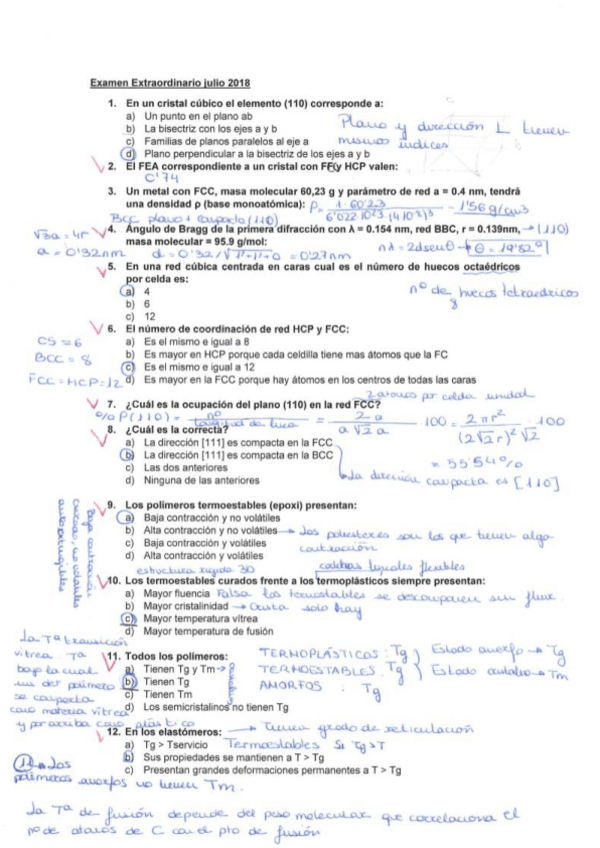 Examen Extraordinario julio 2018
1. En un cristal cúbico el elemento (110) corresponde a:
a) Un punto en el plano ab
b) La bisectriz con los ejes a y b
c) Familias de planos paralelos al eje a
d) Plano perpendicular a la bisectriz de los ejes a y b
Plano y dirección ⊥ tienen
mismos índices
2. El FEA correspondiente a un cristal con FFy HCP valen:
0'74
3. Un metal con FCC, masa molecular 60,23 g y parámetro de red a = 0.4 nm, tendrá
una densidad ρ (base monoatómica):
BCC plano + compacto (110)
√3a = 4r
a = 0'32nm
4. Ángulo de Bragg de la primera difracción con λ = 0.154 nm, red BBC, r = 0.139nm, → (110)
masa molecular = 95.9 g/mol:
d = 0'32/√1²+1²+0 = 0'27nm
nλ = 2dsenθ → θ = 19'82°
5. En una red cúbica centrada en caras cual es el número de huecos octaédricos
por celda es:
a) 4
b) 6
c) 12
nº de huecos tetraedricos
8
6. El número de coordinación de red HCP y FCC:
a) Es el mismo e igual a 8
b) Es mayor en HCP porque cada celdilla tiene mas átomos que la FC
c) Es el mismo e igual a 12
d) Es mayor en la FCC porque hay átomos en los centros de todas las caras
CS = 6
BCC = 8
FCC = HCP = 12
2 atomos por celda unidad
7. ¿Cuál es la ocupación del plano (110) en la red FCC?
% P(110) = nº / = 2·a / a√2a · 100 = 2πr² / (2√2r)²√2 · 100
= 55'54%
8. ¿Cuál es la correcta?
a) La dirección [111] es compacta en la FCC
b) La dirección [111] es compacta en la BCC
c) Las dos anteriores
d) Ninguna de las anteriores
La dirección compacta es [110]
9. Los polímeros termoestables (epoxi) presentan:
a) Baja contracción y no volátiles
b) Alta contracción y no volátiles → Los poliesteres son los que tienen algo
contracción
c) Baja contracción y volátiles
d) Alta contracción y volátiles
Baja contracción
curado, no volatiles
autoextinguibles
estructura rígida 3D
cadenas lineales flexibles
10. Los termoestables curados frente a los termoplásticos siempre presentan:
a) Mayor fluencia Falsa los termoestables se descomponen sin fluir
b) Mayor cristalinidad → solo hay
c) Mayor temperatura vítrea
d) Mayor temperatura de fusión
La Tª transición
vítrea Tª
bajo la cual
un del polímero
se comporta
como materia vítrea
y por arriba como plástico
11. Todos los polímeros:
a) Tienen Tg y Tm
b) Tienen Tg
c) Tienen Tm
d) Los semicristalinos no tienen Tg
TERMOPLÁSTICOS: Tg
TERMOESTABLES: Tg
AMORFOS: Tg
Estado amorfo → Tg
Estado cristalino → Tm
12. En los elastómeros: → Tienen grado de reticulación
a) Tg > Tservicio Termoestables Si Tg > T
b) Sus propiedades se mantienen a T > Tg
c) Presentan grandes deformaciones permanentes a T > Tg
11 → Los
polímeros amorfos no tienen Tm.
La Tª de fusión depende del peso molecular que correlaciona el
nº de atomos de C con el pto de fusión